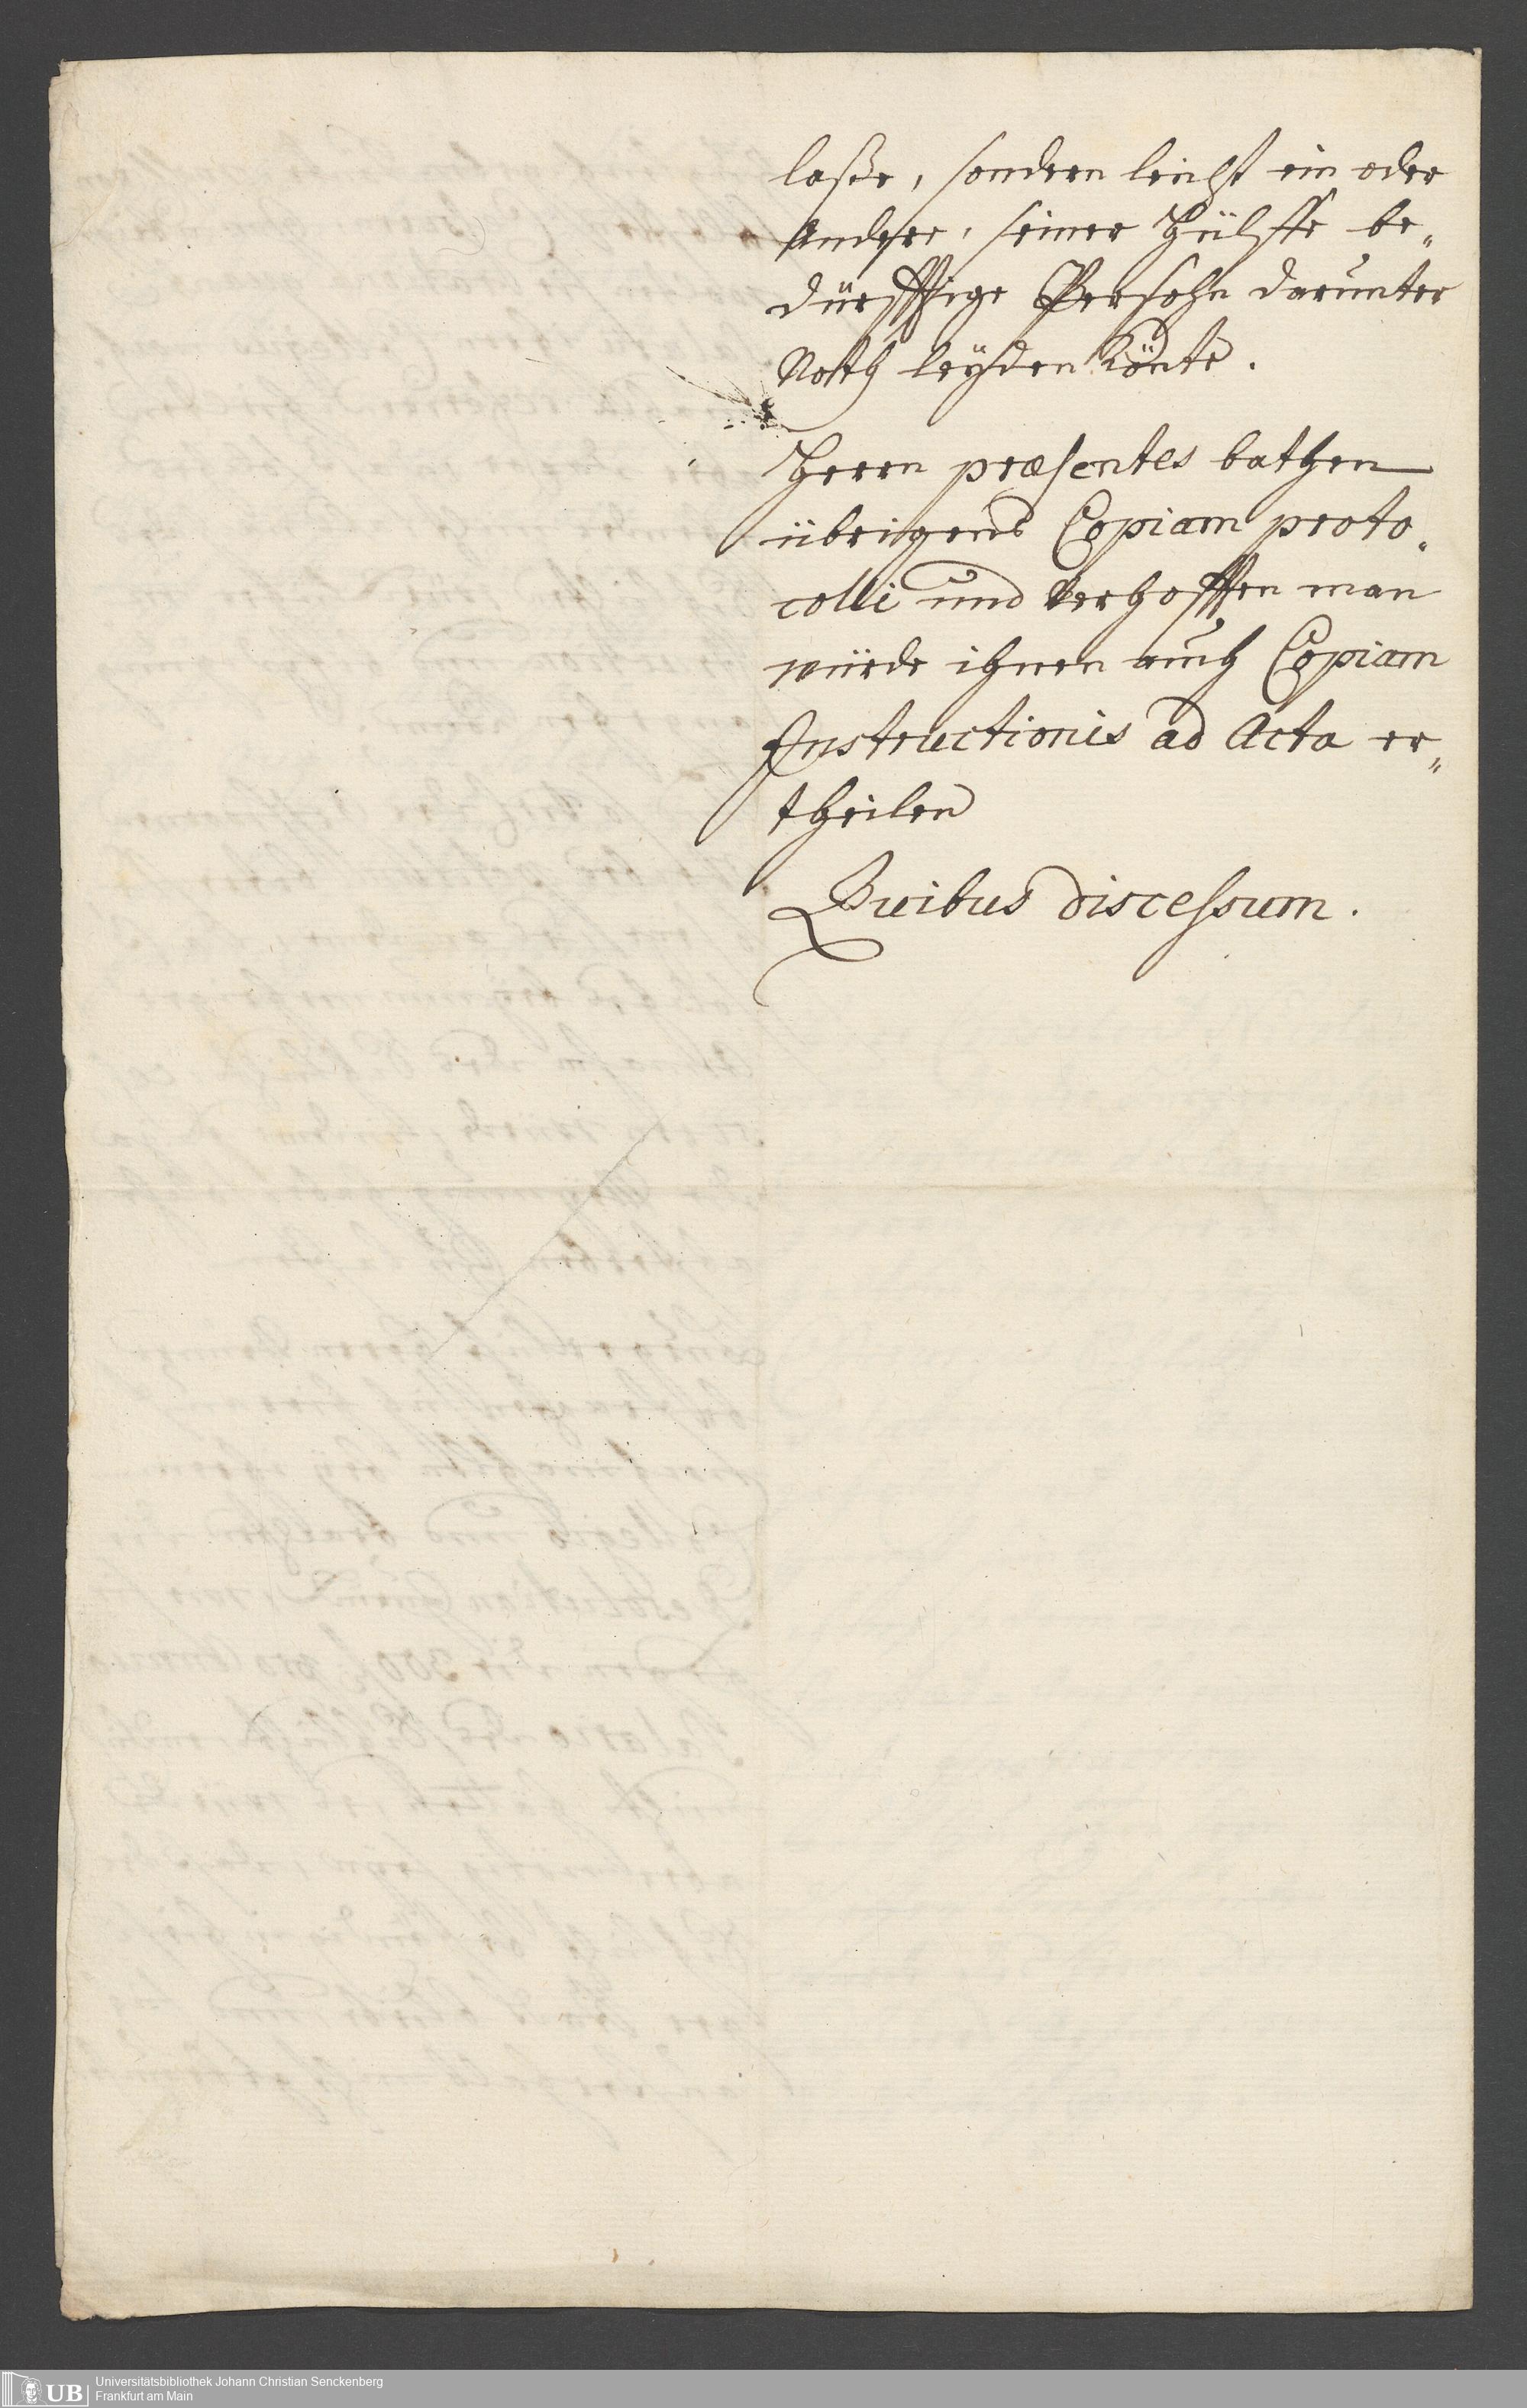 laße, sondern leicht ein oder
andere, seiner Hülffe be„
dürfftige Persohn darunter
Noth leyden könte.
Herrn præsentes bathen
übrigens Copiam proto„
colli und verhoffen man
würde ihnen auch Copiam
Instructionis ad Acta er„
theilen
Quibus discessum.
UB
Universitätsbibliothek Johann Christian Senckenberg
Frankfurt am Main